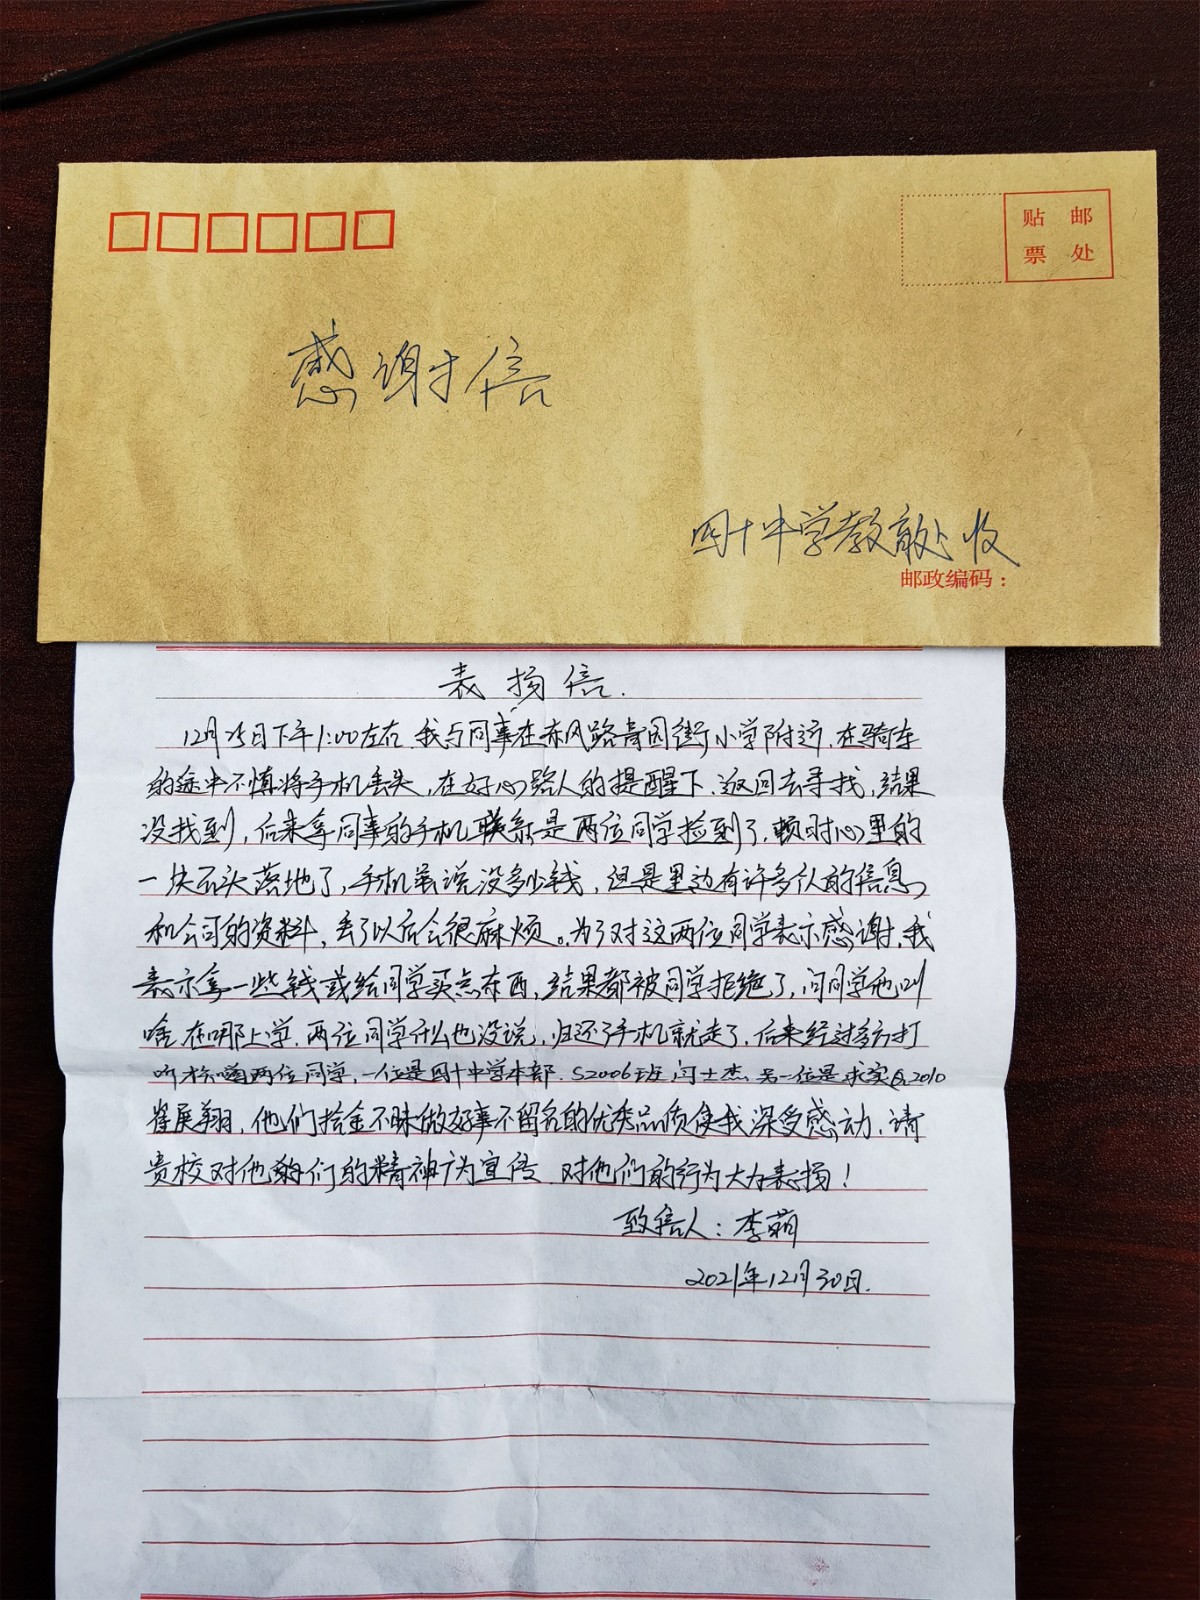 贴 邮
票 处
感谢信
四十中学教育处 收
邮政编码：
表扬信.
12月25日下午1:00左右.我与同事在东风路富园街小学附近.在骑车
的途中不慎将手机丢失,在好心路人的提醒下.返回去寻找,结果
没找到,后来拿同事的手机联系是两位同学捡到了.顿时心里的
一块石头落地了,手机虽说没多少钱,但是里边有许多人的信息
和公司的资料,丢了以后会很麻烦。为了对这两位同学表示感谢.我
表示拿一些钱或给同学买点东西,结果都被同学拒绝了,问同学他叫
啥.在哪上学.两位同学什么也没说,归还了手机就走了.后来经过多方打
听 两位同学,一位是四十中学本部.S2006班 闫士杰.另一位是求实 2010
崔展翔,他们拾金不昧做好事不留名的优秀品质使我深受感动.请
贵校对他们的精神广为宣传.对他们的行为大为表扬!
致信人:李萌
2021年12月30日.